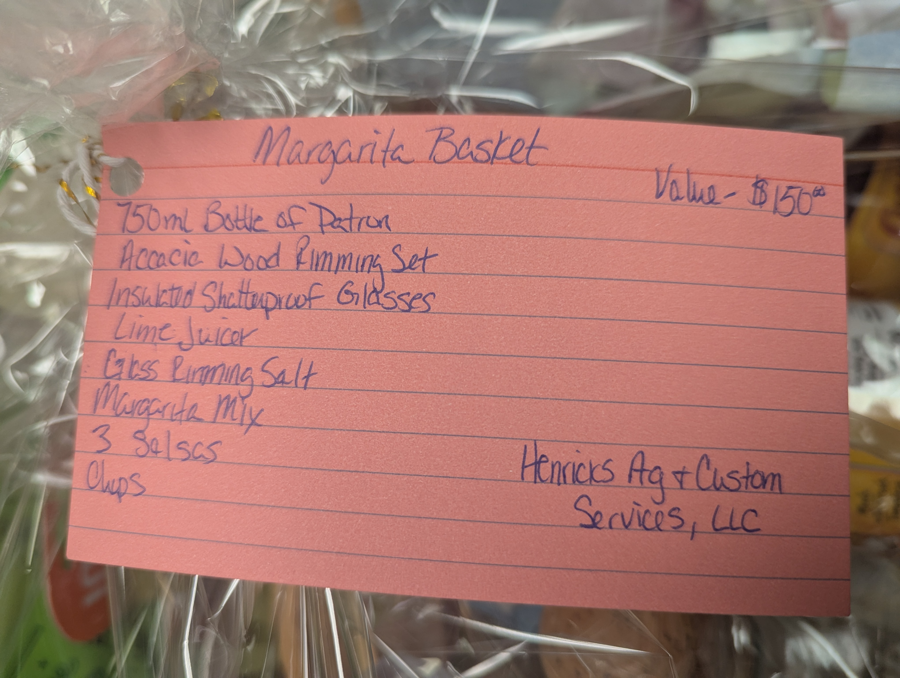 Margarita Basket
Value - $150.00
750ml Bottle of Patron
Accacia Wood Rimming Set
Insulated Shatterproof Glasses
Lime Juicer
Glass Rimming Salt
Margarita Mix
3 Salsas
Chips
Henricks Ag + Custom
Services, LLC